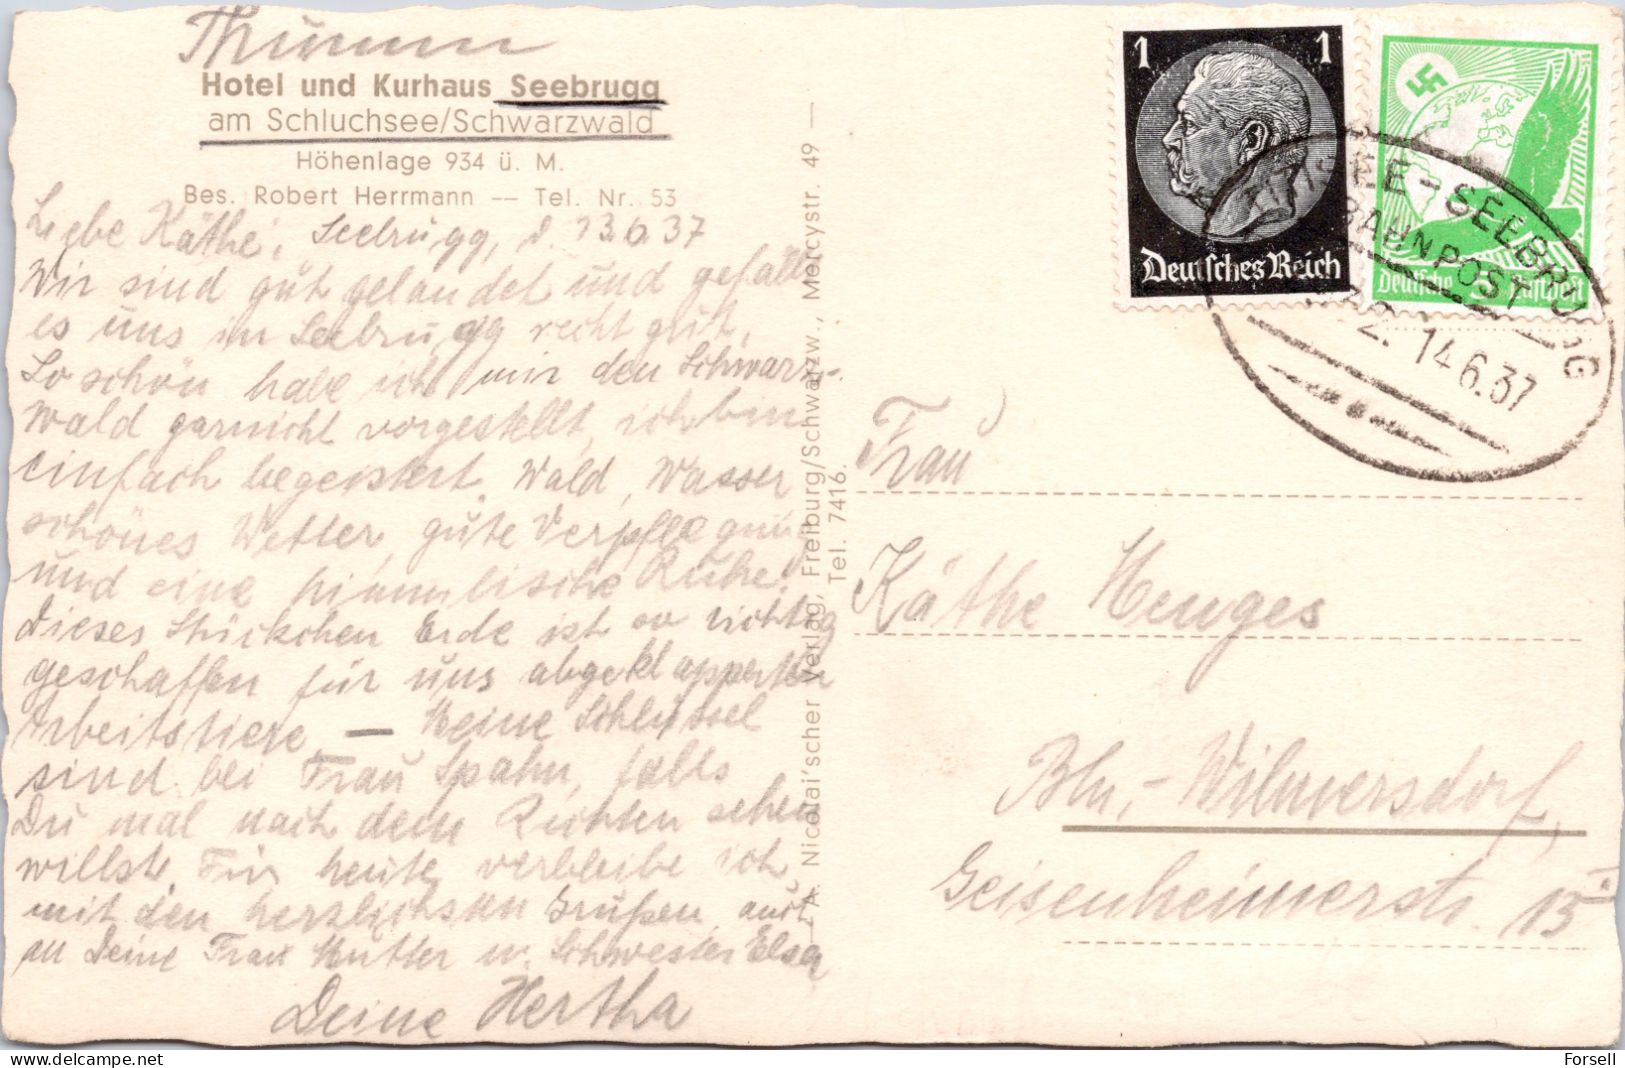 Thumm
Hotel und Kurhaus Seebrugg
am Schluchsee/Schwarzwald
Höhenlage 934 ü. M.
Bes. Robert Herrmann -- Tel. Nr. 53
Liebe Käthe, Seebrugg, d 13.6.37
Wir sind gut gelandet und gefällt
es uns in Seebrugg recht gut.
So schön habe ich mir den Schwarz-
wald garnicht vorgestellt, ich bin
einfach begeistert. Wald, Wasser
schönes Wetter, gute Verpflegung
und eine himmlische Ruhe!
Dieses Stückchen Erde ist so richtig
geschaffen für uns abgeklapperten
Arbeitstiere. — Meine Schlüssel
sind bei Frau Spahn, falls
Du mal nach dem Rechten sehen
willst. Für heute verbleibe ich
mit den herzlichsten Grüßen, auch
an Deine Frau Mutter u. Schwester Elsa
Deine Hertha
A. Nicolai'scher Verlag, Freiburg/Schwarzw., Mercystr. 49 —
Tel. 7416.
1 1
Deutsches Reich
Deutsche 5 Luftpost
TITISEE - SEEBRUGG
BAHNPOST
14.6.37
Frau
Käthe Menges
Bln.-Wilmersdorf,
Geisenheimerstr. 15 I
Forsell